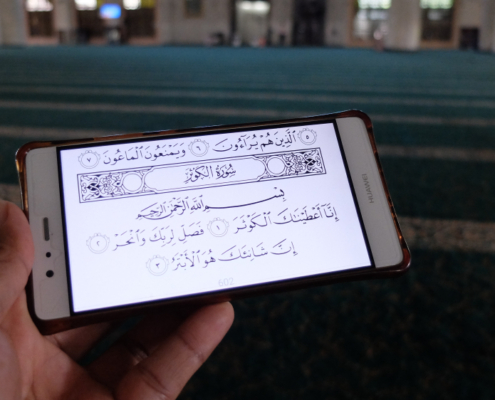 ٱلَّذِينَ هُمْ يُرَآءُونَ ٦ وَيَمْنَعُونَ ٱلْمَاعُونَ ٧
سُورَةُ الكَوْثَرِ
بِسْمِ ٱللَّهِ ٱلرَّحْمَٰنِ ٱلرَّحِيمِ
إِنَّآ أَعْطَيْنَٰكَ ٱلْكَوْثَرَ ١ فَصَلِّ لِرَبِّكَ وَٱنْحَرْ ٢
إِنَّ شَانِئَكَ هُوَ ٱلْأَبْتَرُ ٣
602
HUAWEI